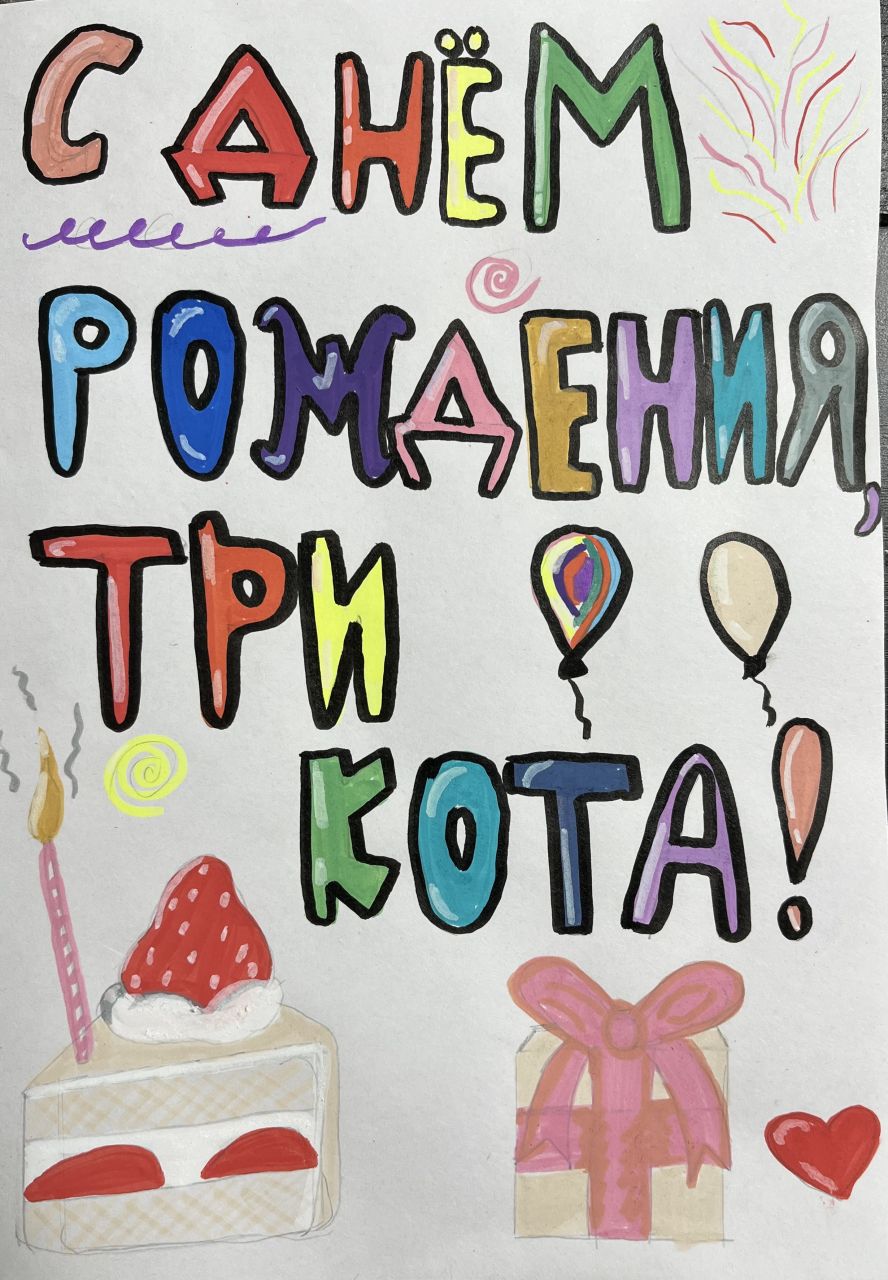 С ДНЁМ
РОЖДЕНИЯ,
ТРИ
КОТА!